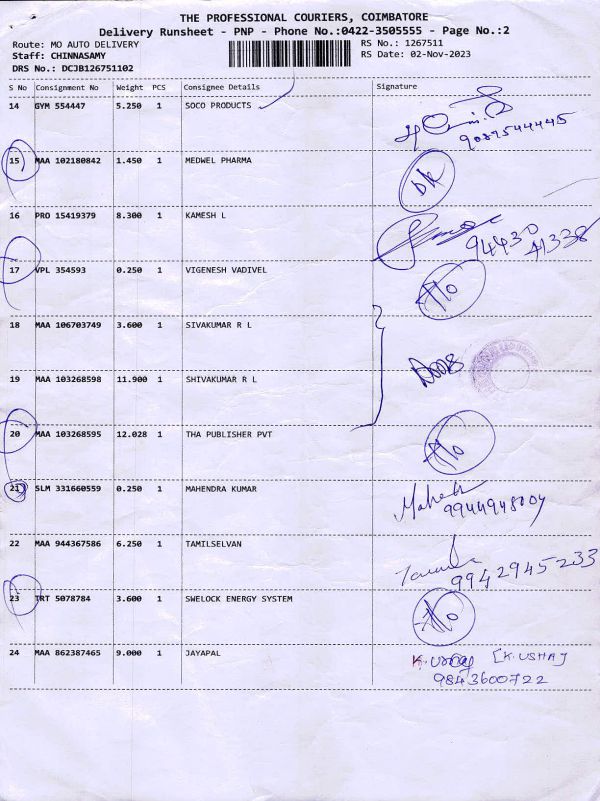 THE PROFESSIONAL COURIERS, COIMBATORE
Delivery Runsheet - PNP - Phone No.:0422-3505555 - Page No.:2
Route: MO AUTO DELIVERY RS No.: 1267511
Staff: CHINNASAMY RS Date: 02-Nov-2023
DRS No.: DCJB126751102
S No Consignment No Weight PCS Consignee Details Signature
14 GYM 554447 5.250 1 SOCO PRODUCTS
9087544445
15 MAA 102180842 1.450 1 MEDWEL PHARMA
16 PRO 15419379 8.300 1 KAMESH L
94430
41338
17 VPL 354593 0.250 1 VIGENESH VADIVEL
18 MAA 106703749 3.600 1 SIVAKUMAR R L
19 MAA 103268598 11.900 1 SHIVAKUMAR R L
20 MAA 103268595 12.028 1 THA PUBLISHER PVT
21 SLM 331660559 0.250 1 MAHENDRA KUMAR
9944948004
22 MAA 944367586 6.250 1 TAMILSELVAN
9942945233
23 TRT 5078784 3.600 1 SWELOCK ENERGY SYSTEM
24 MAA 862387465 9.000 1 JAYAPAL [K.USHA]
9843600722